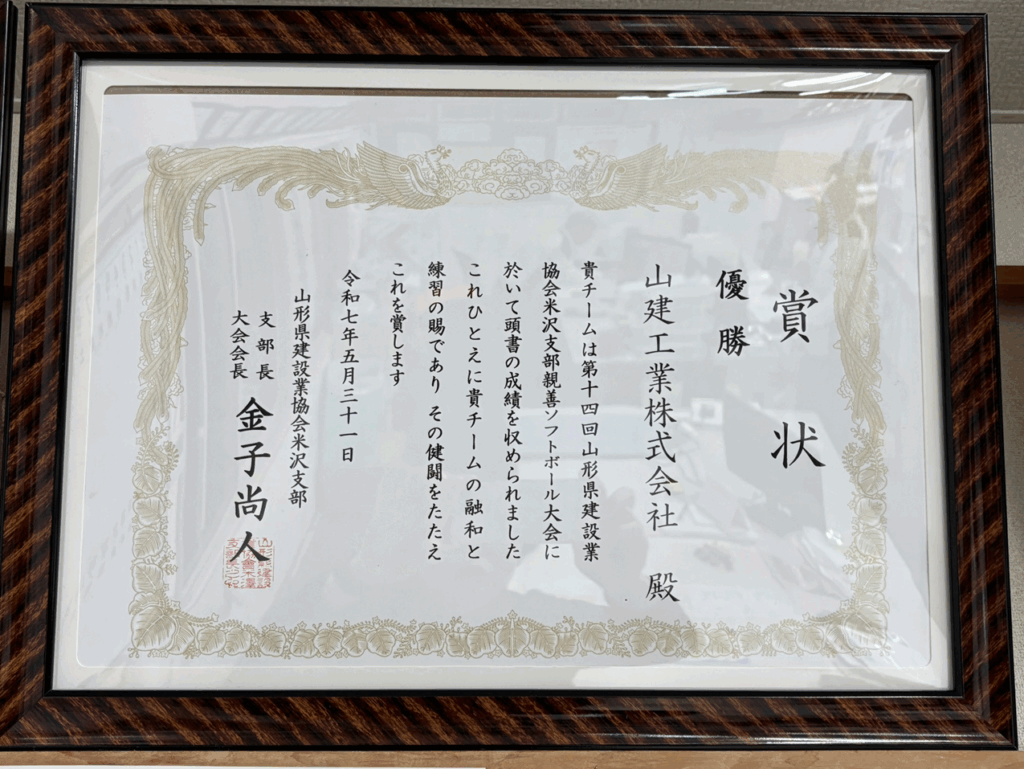 賞状
優勝
山建工業株式会社 殿
貴チームは第十四回山形県建設業
協会米沢支部親善ソフトボール大会に
於いて頭書の成績を収められました
これひとえに貴チームの融和と
練習の賜であり その健闘をたたえ
これを賞します
令和七年五月三十一日
山形県建設業協会米沢支部
支部長
大会会長
金子尚人